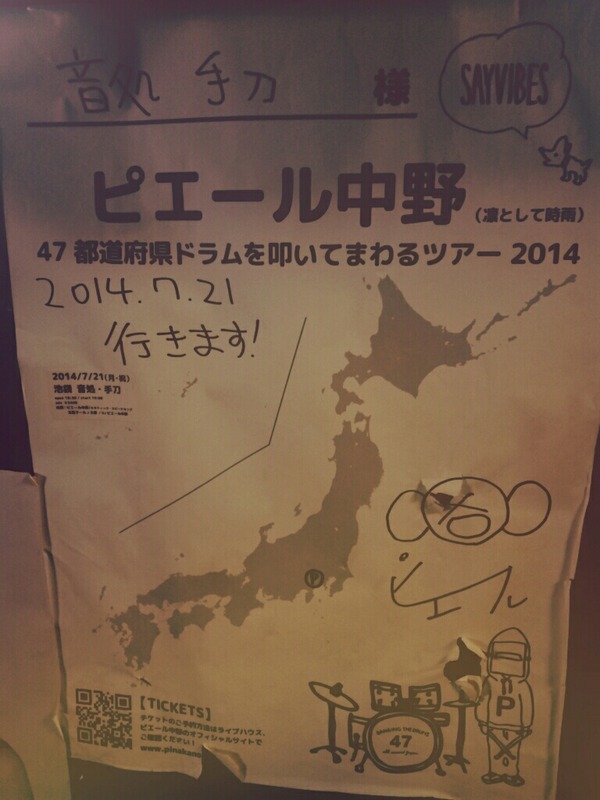 音処 手刀 様
SAYVIBES
ピエール中野 (凛として時雨)
47 都道府県ドラムを叩いてまわるツアー 2014
2014.7.21
行きます!
2014/7/21(月・祝)
池袋 音処・手刀
P
ピエール
P
47
【TICKETS】
チケットのご予約方法はライブハウス、
ピエール中野のオフィシャルサイトで
ご確認ください!
www.pinakano